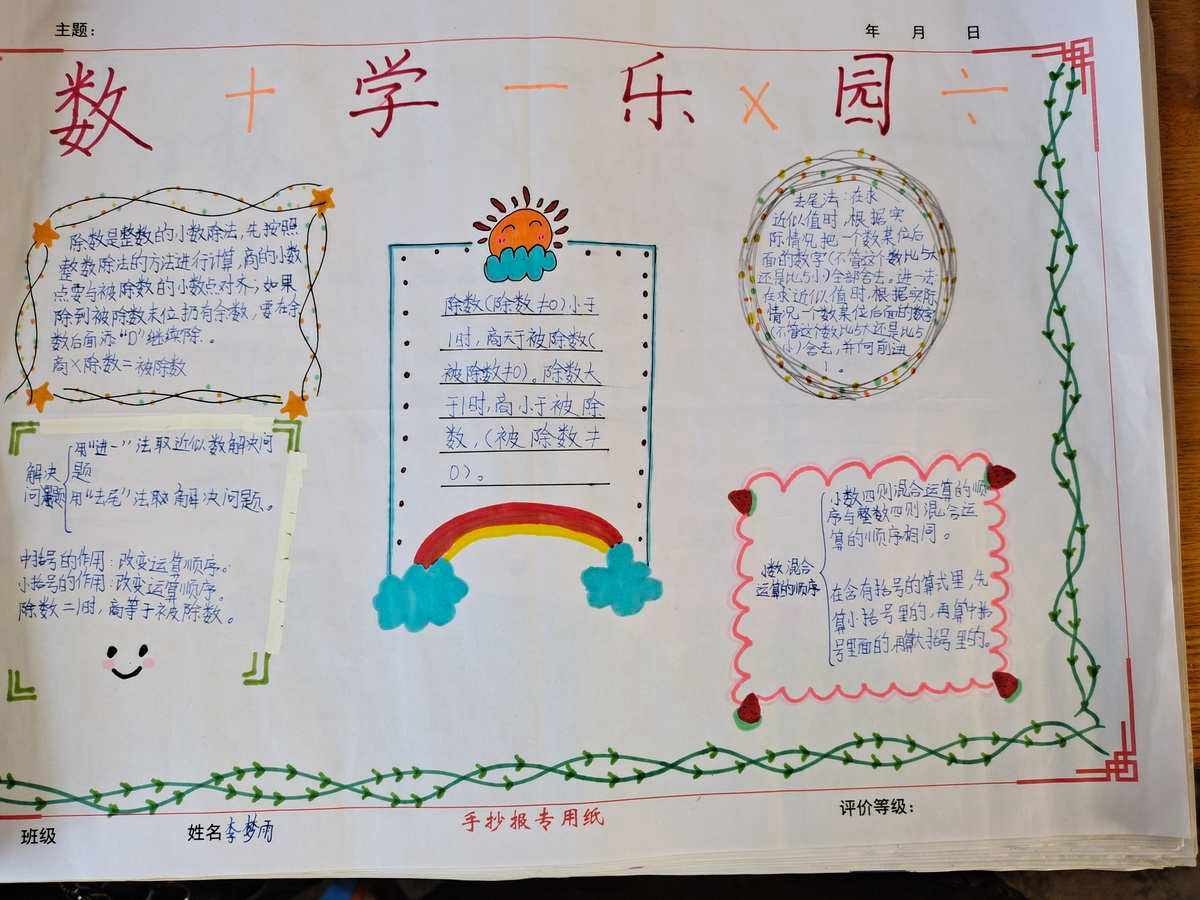 主题：
年 月 日
数 + 学 － 乐 × 园 ÷
除数是整数的小数除法，先按照
整数除法的方法进行计算，商的小数
点要与被除数的小数点对齐；如果
除到被除数末位扔有余数，要在余
数后面添“0”继续除.。
商×除数=被除数
解决
问题
用“进一”法取近似数解决问
题
用“去尾”法取 解决问题。
中括号的作用：改变运算顺序。
小括号的作用：改变运算顺序。
除数=1时，商等于被除数。
除数(除数≠0)小于
1时，商大于被除数(
被除数≠0)。除数大
于1时，商小于被除
数，(被除数≠
0)。
去尾法：在求
近似值时，根据实
际情况把一个数某位后
面的数字(不管这个数比5大
还是比5小)全部舍去。进一法
在求近似值时，根据实际
情况一个数某位后面的数字
(不管这个数比5大还是比5
小)舍去，并向前进
1。
小数混合
运算的顺序
小数四则混合运算的顺
序与整数四则混合运
算的顺序相同。
在含有括号的算式里，先
算小括号里的，再算中括
号里面的，再算大括号里的。
班级
姓名 李梦雨
手抄报专用纸
评价等级：